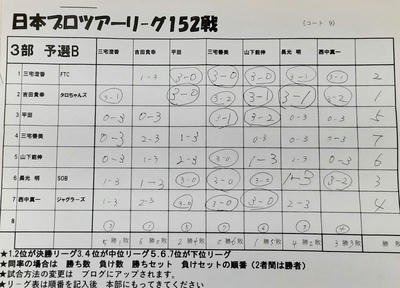 日本プロツアーリーグ152戦
(コート 9)
3部 予選B 三宅澄香 吉田貴幸 平田 三宅善美 山下能伸 長光 明 西中真一
1 三宅澄香 FTC 1-3 3-0 3-0 3-0 3-1 3-1 2
2 吉田貴幸 タロちゃんズ 3-1 3-0 3-2 3-1 3-1 3-2 1
3 平田 0-3 0-3 3-1 3-2 0-3 0-3 5
4 三宅善美 0-3 2-3 1-3 0-3 0-3 0-3 7
5 山下能伸 0-3 1-3 2-3 3-0 1-3 0-3 6
6 長光 明 SOB 1-3 1-3 3-0 3-0 3-1 3-2 3
7 西中真一 ジャグラーズ 1-3 2-3 3-0 3-0 3-0 2-3 4
8
5勝1敗 6勝0敗 2勝4敗 0勝6敗 1勝5敗 4勝2敗 3勝3敗 勝 敗
★1.2位が決勝リーグ3.4位が中位リーグ5.6.7位が下位リーグ
★同率の場合は 勝ち数 負け数 勝ちセット 負けセットの順番(2者間は勝者)
★試合方法の変更は ブログにアップされます。
★リーグ表は順番を記入後 本部にもってきてください